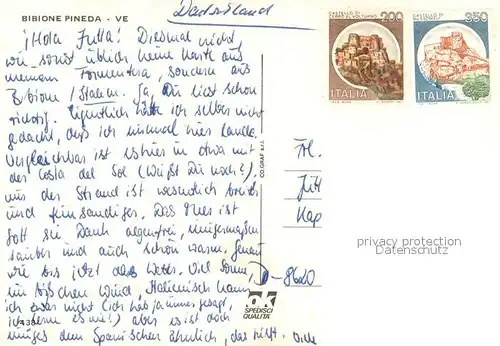 BIBIONE PINEDA - VE
Deutschland
¡Hola Jutta! Diesmal nicht
wie sonst üblich eine Karte aus
meinem Formentera, sondern aus
Bibione / Italien. Ja, Du liest schon
richtig. Eigentlich hätte ich selber nicht
gedacht, daß ich einmal hier lande.
Vergleichbar ist es hier in etwa mit
der Costa del Sol (Weißt Du noch?),
nur der Strand ist wesentlich breiter
und feinsandiger. Das Meer ist
Gott sei Dank algenfrei, einigermaßen
sauber und auch schön warm. Genau
wie bis jetzt das Wetter. Viel Sonne,
ein bißchen Wind, Italienisch kann
ich zwar nicht (ich hab ja immer gesagt,
ich lerne es nie!) aber es ist doch
einiges dem Spanischen ähnlich, das hilft.
CASTELLO DI CERRO AL VOLTURNO
200
ITALIA
CASTELLO DI
350
ITALIA
CO.GRAF s.r.l.
Frl.
Jutt
Kap
D-8620
ok
SPEDISCI QUALITÀ
privacy protection
www.Ansichtskartenversand.com